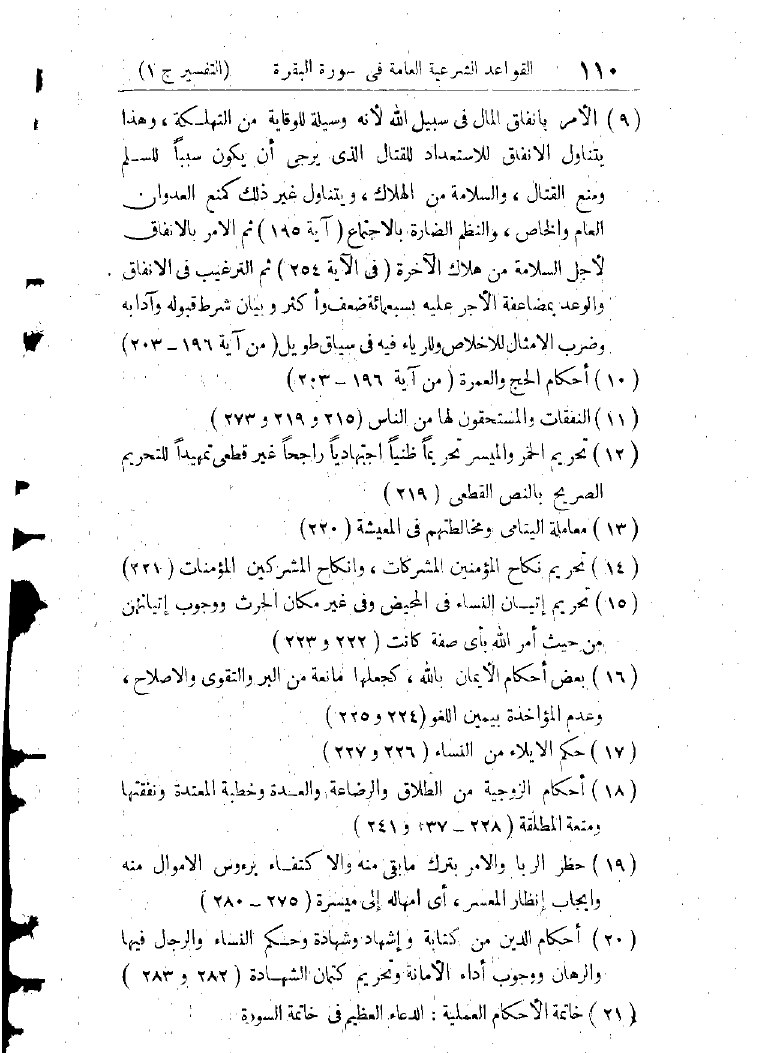 ١١٠ القواعد الشرعية العامة فى سورة البقرة (التفسير ج ١)
(٩) الأمر بانفاق المال فى سبيل الله لأنه وسيلة للوقاية من التهلكة ، وهذا
يتناول الانفاق للاستعداد للقتال الذى يرجى أن يكون سبباً للسلم
ومنع القتال ، والسلامة من الهلاك ، ويتناول غير ذلك كمنع العدوان
العام والخاص ، والنظم الضارة بالاجتماع (آية ١٩٥) ثم الامر بالانفاق
لأجل السلامة من هلاك الآخرة (فى الآية ٢٥٤) ثم الترغيب فى الانفاق
والوعد بمضاعفة الأجر عليه بسبعمائة ضعف وأكثر وبيان شرط قبوله وآدابه
وضرب الامثال للاخلاص وللرياء فيه فى سياق طويل (من آية ١٩٦ - ٢٠٣)
(١٠) أحكام الحج والعمرة (من آية ١٩٦ - ٢٠٣)
(١١) النفقات والمستحقون لها من الناس (٢١٥ و ٢١٩ و ٢٧٣)
(١٢) تحريم الخمر والميسر تحريماً ظنياً اجتهادياً راجحاً غير قطعى تمهيداً للتحريم
الصريح بالنص القطعى (٢١٩)
(١٣) معاملة اليتامى ومخالطتهم فى المعيشة (٢٢٠)
(١٤) تحريم نكاح المؤمنين المشركات ، وانكاح المشركين المؤمنات (٢٢١)
(١٥) تحريم إتيان النساء فى المحيض وفى غير مكان الحرث ووجوب إتيانهن
من حيث أمر الله بأى صفة كانت (٢٢٢ و ٢٢٣)
(١٦) بعض أحكام الأيمان بالله ، كجعلها مانعة من البر والتقوى والاصلاح ،
وعدم المؤاخذة بيمين اللغو (٢٢٤ و ٢٢٥)
(١٧) حكم الايلاء من النساء (٢٢٦ و ٢٢٧)
(١٨) أحكام الزوجية من الطلاق والرضاعة والعدة وخطبة المعتدة ونفقتها
ومتعة المطلقة (٢٢٨ - ٢٣٧ و ٢٤١)
(١٩) حظر الربا والامر بترك مابقى منه والاكتفاء برءوس الاموال منه
وايجاب إنظار المعسر ، أى امهاله إلى ميسرة (٢٧٥ - ٢٨٠)
(٢٠) أحكام الدين من كتابة وإشهاد وشهادة وحكم النساء والرجال فيها
والرهان ووجوب أداء الأمانة وتحريم كتمان الشهادة (٢٨٢ و ٢٨٣)
(٢١) خاتمة الأحكام العملية : الدعاء العظيم فى خاتمة السورة